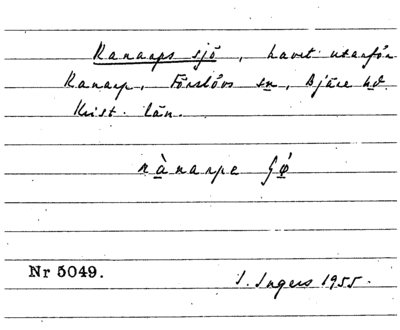 Ranarps sjö, havet utanför
Ranarp, Förslövs sn, Bjäre hd.
Krist. län.
rànarpe
Nr 5049.
I. Ingers 1955.